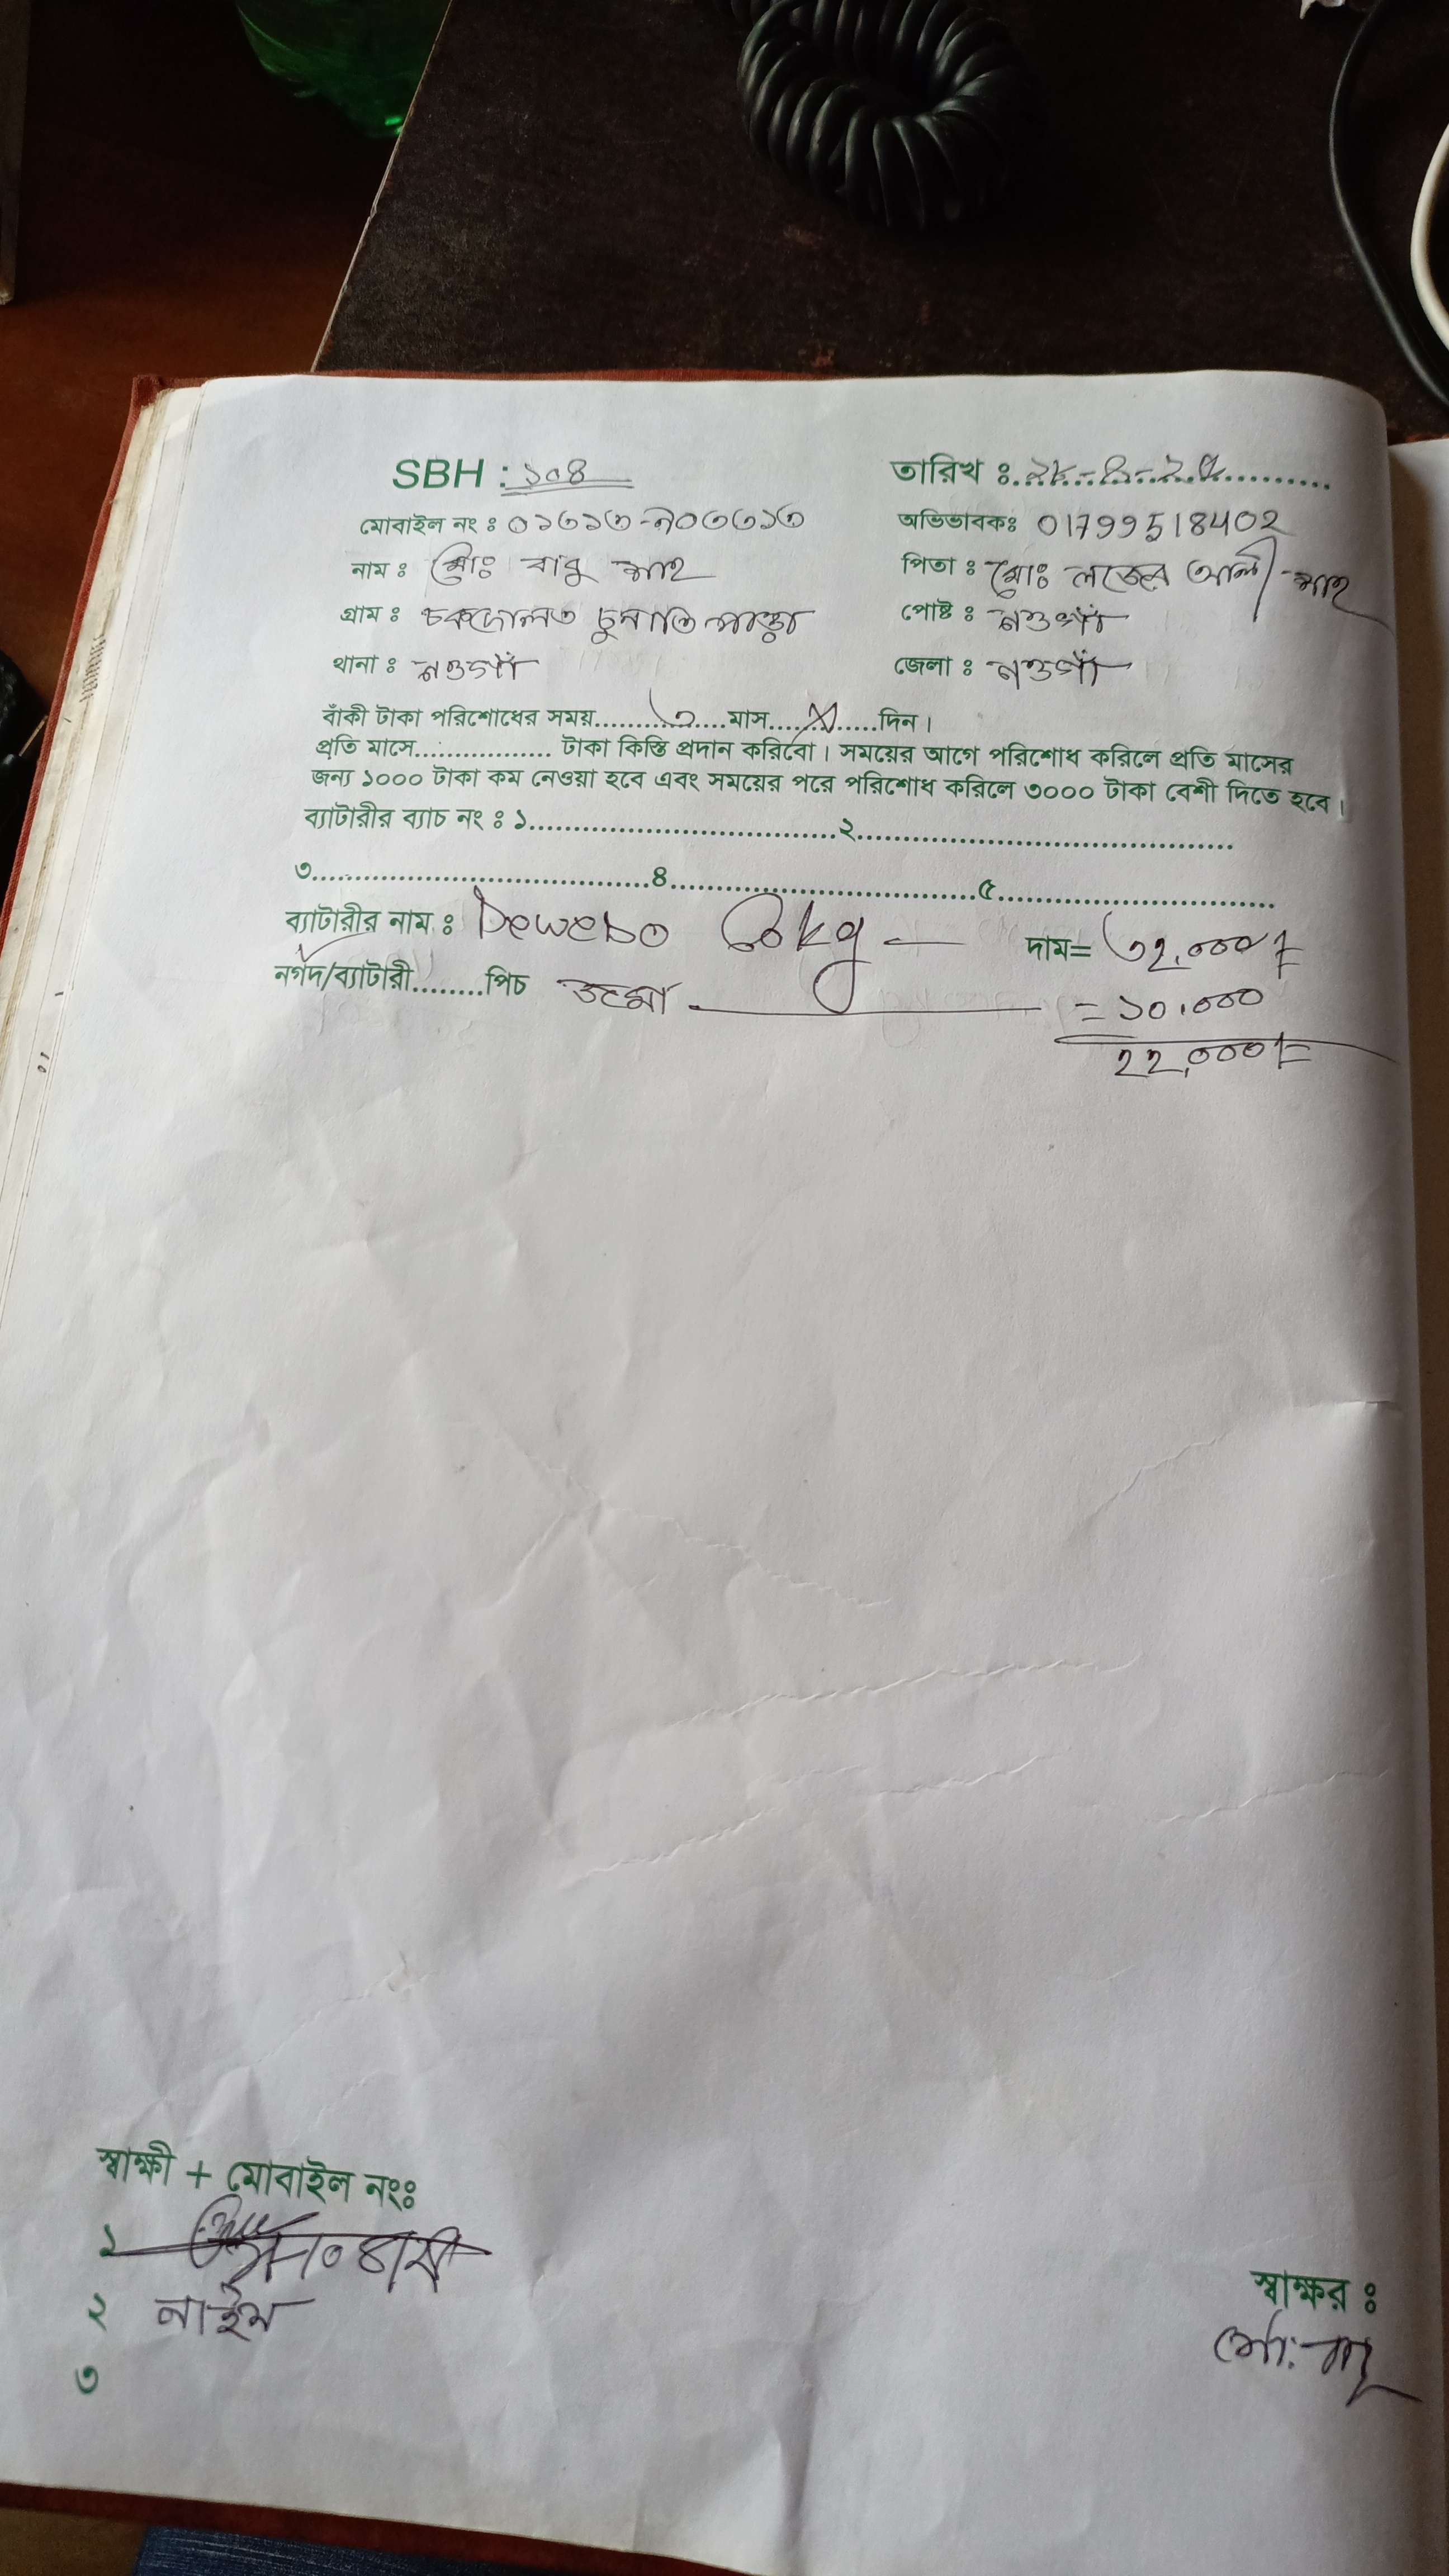 SBH : ১০৪ তারিখ ঃ
মোবাইল নং ঃ ০১৩১৩-৭০৩৩১৩ অভিভাবকঃ 01799518402
নাম ঃ মোঃ বাবু শাহ পিতা ঃ মোঃ লজের আলী শাহ
গ্রাম ঃ চকদোলত পাড়া পোষ্ট ঃ নওগাঁ
থানা ঃ নওগাঁ জেলা ঃ নওগাঁ
বাঁকী টাকা পরিশোধের সময়.........৩....মাস......×.....দিন।
প্রতি মাসে................ টাকা কিস্তি প্রদান করিবো। সময়ের আগে পরিশোধ করিলে প্রতি মাসের
জন্য ১০০০ টাকা কম নেওয়া হবে এবং সময়ের পরে পরিশোধ করিলে ৩০০০ টাকা বেশী দিতে হবে।
ব্যাটারীর ব্যাচ নং ঃ ১...................................২...........................................
৩......................................৪...................................৫................................
ব্যাটারীর নাম ঃ kg — দাম= ৩২,০০০
নগদ/ব্যাটারী........পিচ জমা = ১০,০০০
২২,০০০
স্বাক্ষী + মোবাইল নংঃ
১
২ নাইম
স্বাক্ষর ঃ
৩